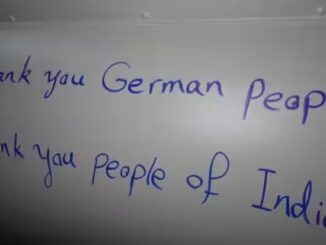 ank you German Peop
nk you people of Indi